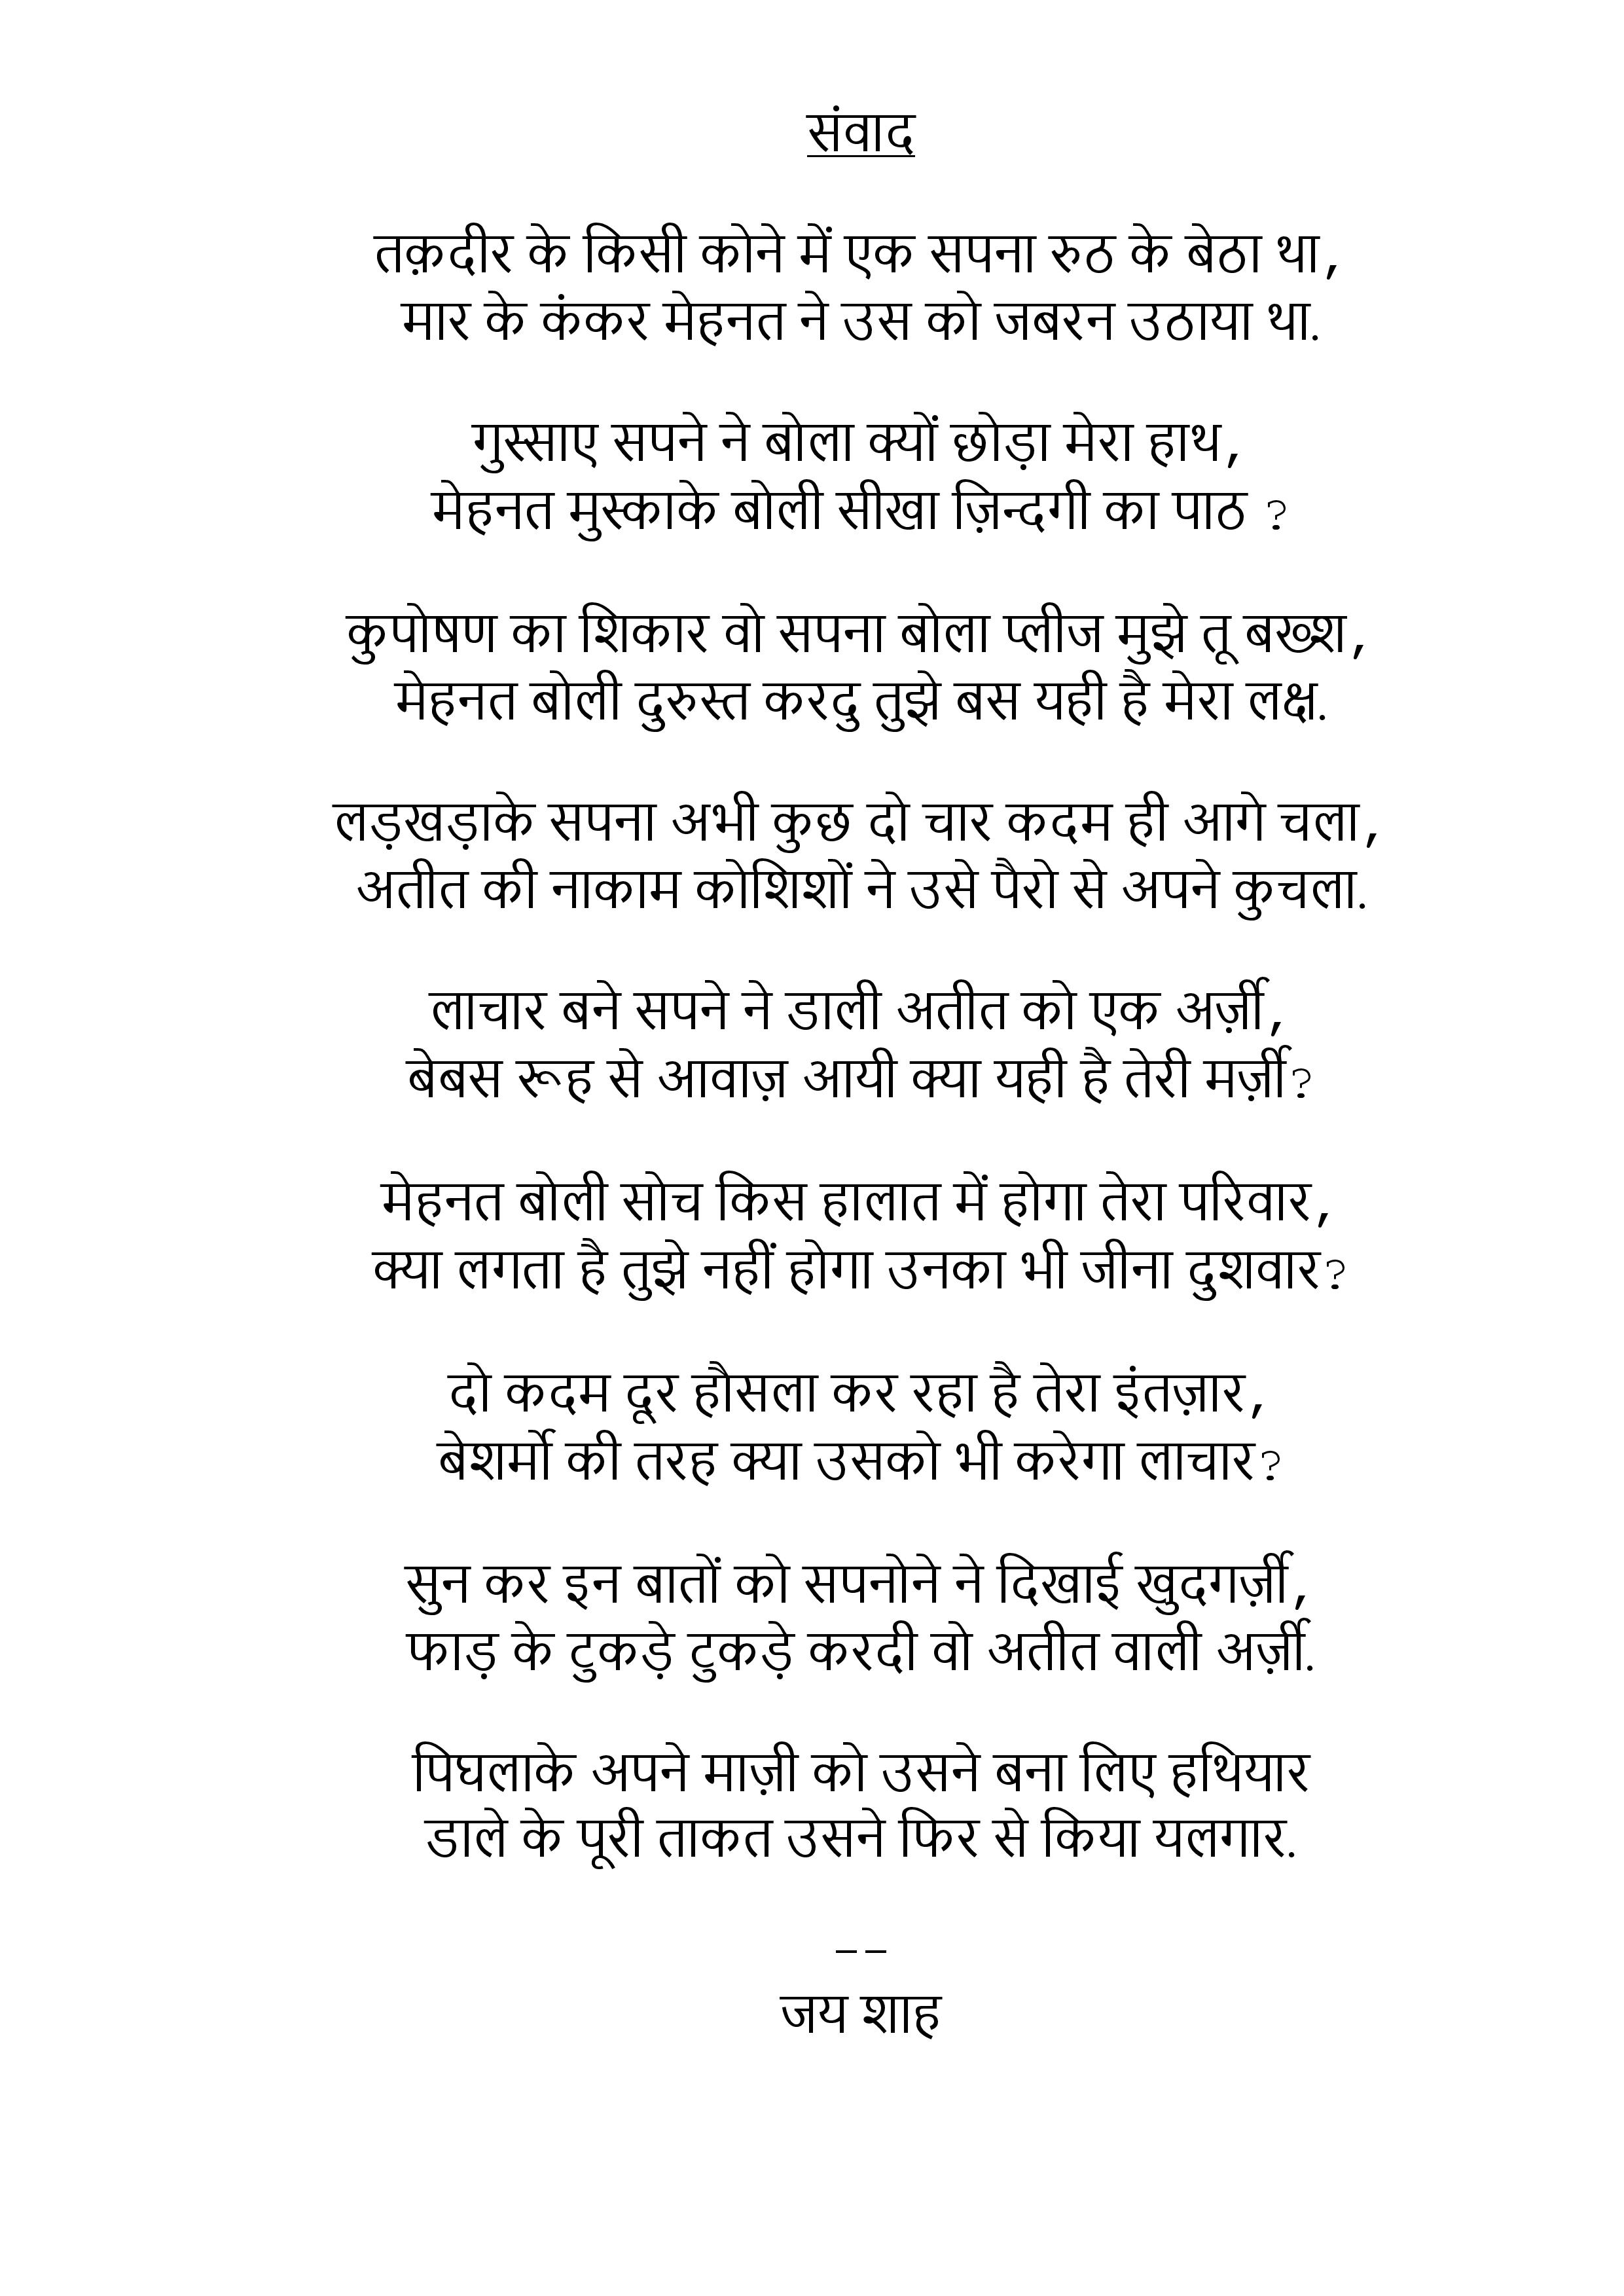 संवाद
तक़दीर के किसी कोने में एक सपना रुठ के बेठा था,
मार के कंकर मेहनत ने उस को जबरन उठाया था.
गुस्साए सपने ने बोला क्यों छोड़ा मेरा हाथ,
मेहनत मुस्काके बोली सीखा ज़िन्दगी का पाठ ?
कुपोषण का शिकार वो सपना बोला प्लीज मुझे तू बख्श,
मेहनत बोली दुरुस्त करदु तुझे बस यही है मेरा लक्ष.
लड़खड़ाके सपना अभी कुछ दो चार कदम ही आगे चला,
अतीत की नाकाम कोशिशों ने उसे पैरो से अपने कुचला.
लाचार बने सपने ने डाली अतीत को एक अर्ज़ी,
बेबस रूह से आवाज़ आयी क्या यही है तेरी मर्ज़ी?
मेहनत बोली सोच किस हालात में होगा तेरा परिवार,
क्या लगता है तुझे नहीं होगा उनका भी जीना दुशवार?
दो कदम दूर हौसला कर रहा है तेरा इंतज़ार,
बेशर्मो की तरह क्या उसको भी करेगा लाचार?
सुन कर इन बातों को सपनोने ने दिखाई खुदगर्ज़ी,
फाड़ के टुकड़े टुकड़े करदी वो अतीत वाली अर्ज़ी.
पिघलाके अपने माज़ी को उसने बना लिए हथियार
डाले के पूरी ताकत उसने फिर से किया यलगार.
--
जय शाह